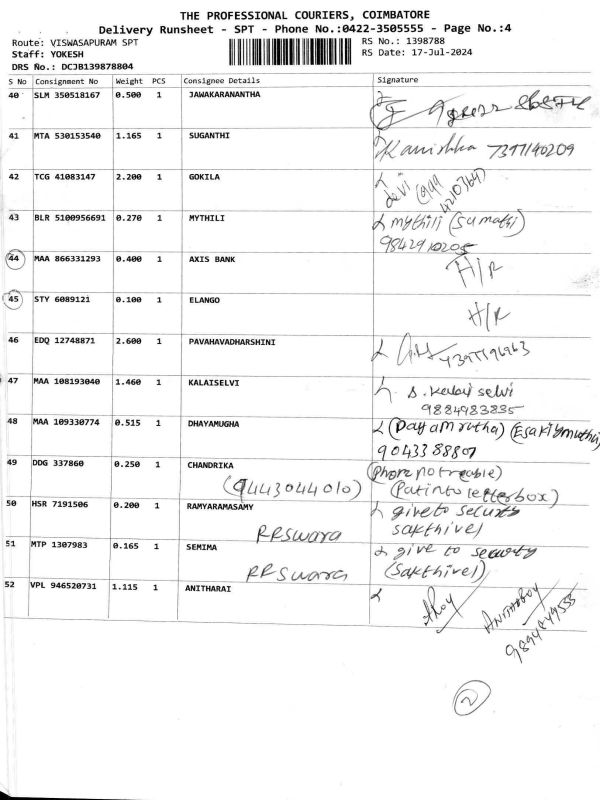 THE PROFESSIONAL COURIERS, COIMBATORE
Delivery Runsheet - SPT - Phone No.:0422-3505555 - Page No.:4
Route: VISWASAPURAM SPT
RS No.: 1398788
Staff: YOKESH
RS Date: 17-Jul-2024
DRS No.: DCJB139878804
S No Consignment No Weight PCS Consignee Details Signature
40 SLM 350518167 0.500 1 JAWAKARANANTHA
41 MTA 530153540 1.165 1 SUGANTHI Kanishka 7397140209
42 TCG 41083147 2.200 1 GOKILA devi
43 BLR 5100956691 0.270 1 MYTHILI mythili (Sumathi)
9842910205
44 MAA 866331293 0.400 1 AXIS BANK H/R
45 STY 6089121 0.100 1 ELANGO H/R
46 EDQ 12748871 2.600 1 PAVAHAVADHARSHINI
47 MAA 108193040 1.460 1 KALAISELVI S. Kalai selvi
9884983835
48 MAA 109330774 0.515 1 DHAYAMUGHA (Dayamrutha)
9043388807
49 DDG 337860 0.250 1 CHANDRIKA (Phone not reable)
(9443044010) (Put into letter box)
50 HSR 7191506 0.200 1 RAMYARAMASAMY give to security
RRSwara sakthivel
51 MTP 1307983 0.165 1 SEMIMA give to security
RRSwara (Sakthivel)
52 VPL 946520731 1.115 1 ANITHARAI
9894849555
2